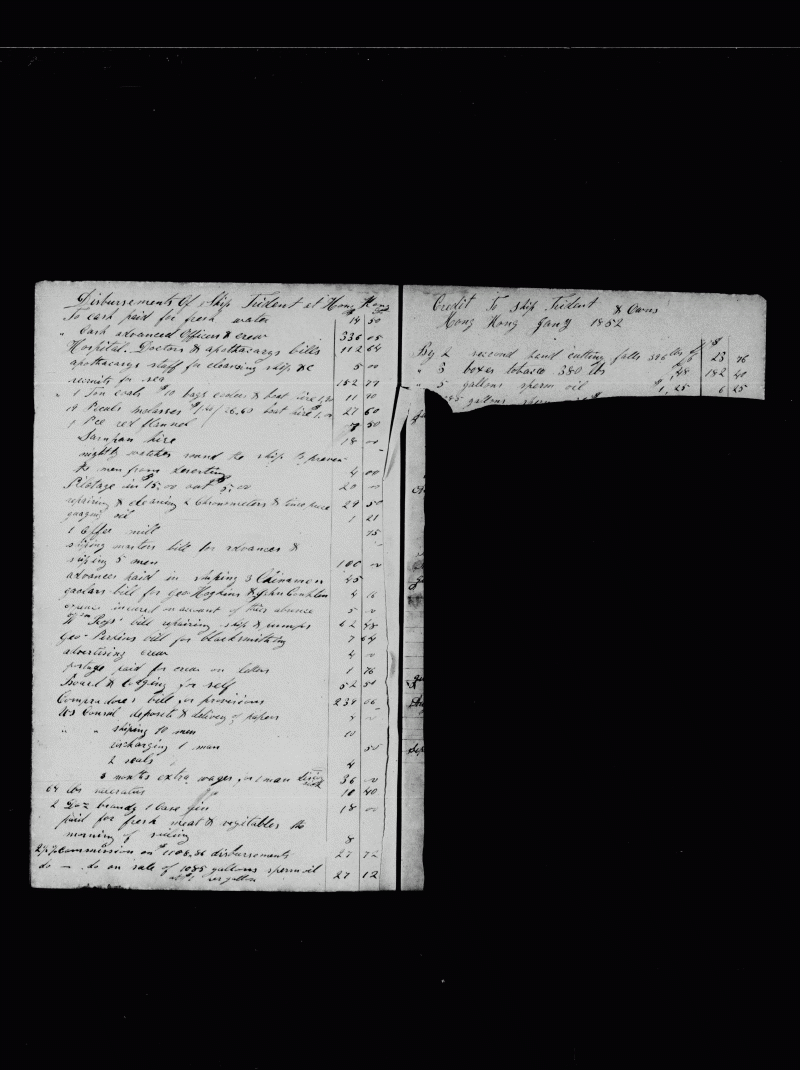 Disbursements Of Ship Trident at Hong Kong
To cash paid for fresh water 14 50
" Cash advanced Officers & crew 336 05
Hospital Doctors & apothacarys bills 112 64
apothacarys stuff for cleansing ship &c 5 00
recruits for sea 152 77
" 1 Ton coals $10 bags coolies & boat hire 1,90 11 90
14 Piculs molasses boat hire 27 60
1 Pce red flannel 7 50
Sampan hire 18 00
nightly watches round the ship to preven
the men from deserting 4 00
Pilotage in $15,00 out $5,00 20 00
repairing & cleaning 2 Chronometers & time piece 29 50
guaging oil 1 21
1 Coffee mill 75
shiping masters bill for advances &
shiping 5 men 100 00
advances paid in shiping 3 Chinamen 45
gaolers bill for Geo Hopkins & John Conklin 4 16
expence incured on account of their absence 5 00
bill repairing ship & pumps 62 48
Geo Perkins bill for blacksmithing 7 64
advertising crew 4 00
postage paid for crew on letters 1 76
Board & lodging for self 52 50
Compradore's bill for provisions 239 06
US Consul deposits & delivery of papers 4 00
" " shiping 10 men 10
discharging 1 man 50
2 seals 4
3 months extra wages for 1 man 36 00
64 lbs saleratus 10 40
2 Doz brandy 1 Case gin 18 00
paid for fresh meat & vegitables the
morning of sailing 8
2½ % commission on $1108,86 disbursements 27 72
do — do on sale of 1085 gallons sperm oil
at $1 per gallon 27 12
Credit To Ship Trident & Owners
Hong Kong Jany 1852
$
By 2 second hand cutting falls 396 lbs 6 23 76
" 3 boxes tobacco 380 lbs ,48 182 40
" 5 gallons sperm oil $1,25 6 25
gallons sperm